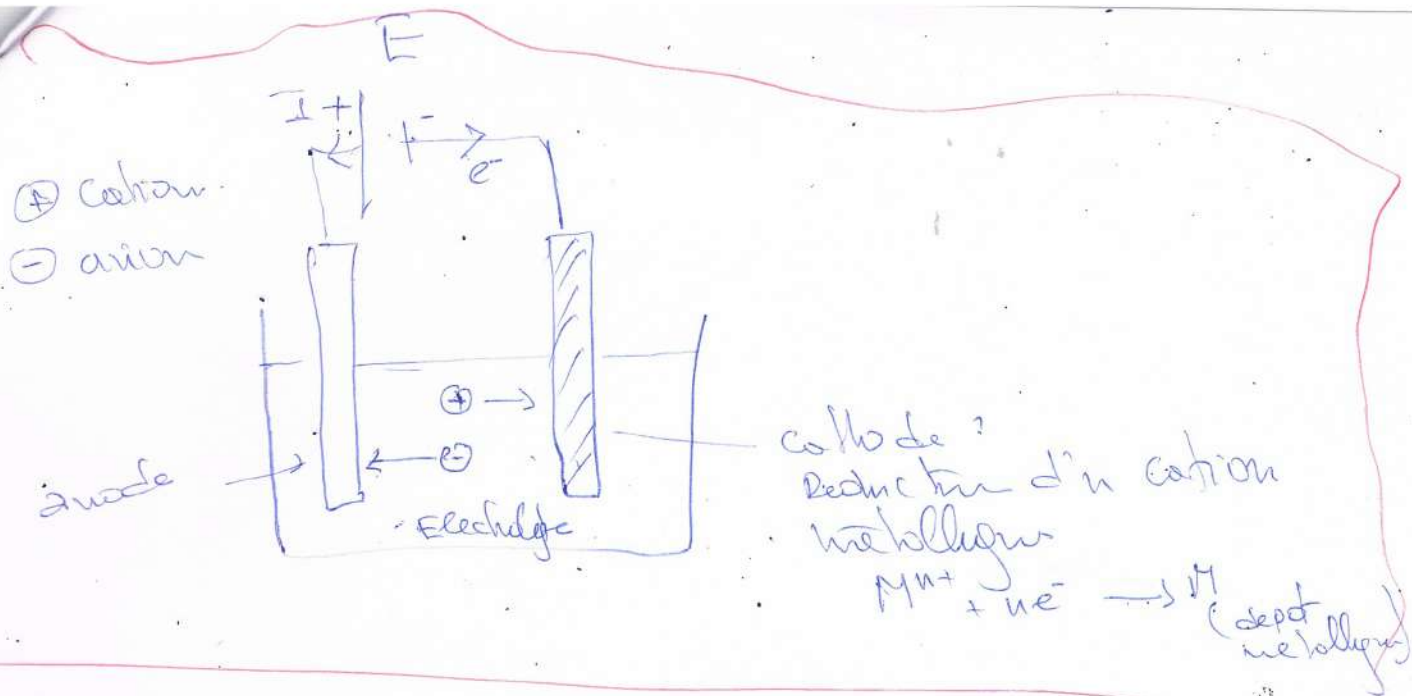 E
I + -
e-
⊕ cation
⊖ anion
⊕
⊖
anode
Electrolyte
cathode :
Reduction d'un cation
métallique
Mⁿ⁺ + ne⁻ → M
(depot
métallique)